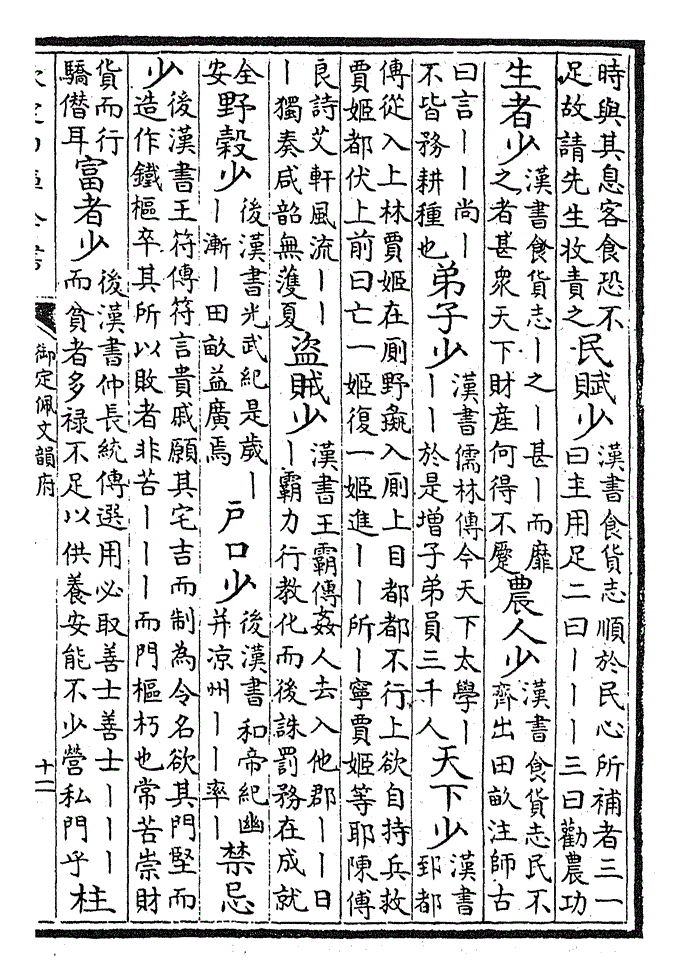 時與其息客食恐不
足故請先生收責之
民賦少
漢書食貨志順於民心所補者三一
曰主用足二曰丨丨丨三曰勸農功
生者少
漢書食貨志丨之丨甚丨而靡
之者甚衆天下財産何得不蹷
農人少
漢書食貨志民不
齊出田畝注師古
曰言丨丨尚丨
不皆務耕種也
弟子少
漢書儒林傳今天下太學丨
丨丨於是增子弟員三千人
天下少
漢書
郅都
傳從入上林賈姬在厠野彘入厠上目都都不行上欲自持兵救
賈姬都伏上前曰亡一姬復一姬進丨丨所丨寧賈姬等耶陳傅
良詩艾軒風流丨丨
丨獨奏咸韶無濩夏
盜賊少
漢書王霸傳姦人去入他郡丨丨日
丨霸力行教化而後誅罰務在成就
全
安
野穀少
後漢書光武紀是歲丨
丨漸丨田畝益廣焉
戸口少
後漢書和帝紀幽
并涼州丨丨率丨
禁忌
少
後漢書王符傳符言貴戚願其宅吉而制為令名欲其門堅而
造作鐵樞卒其所以敗者非苦丨丨丨而門樞朽也常苦崇財
貨而行
驕僭耳
富者少
後漢書仲長統傳選用必取善士善士丨丨丨
而貧者多祿不足以供養安能不少營私門乎
柱
御定佩文韻府
十二